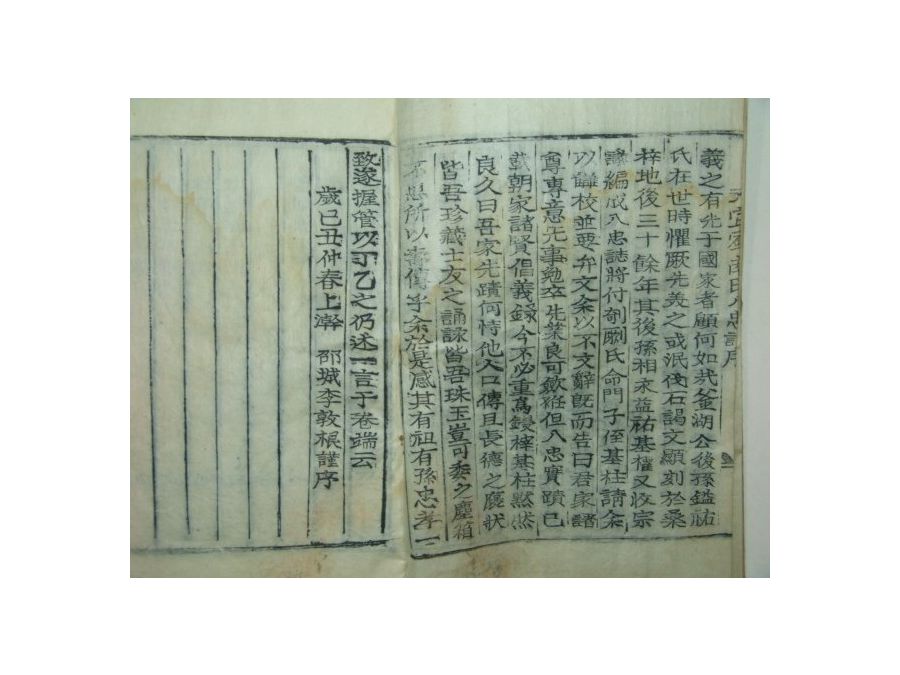 義之有先于國家者顧何如哉釜湖公後孫鎰祐
氏在世時懼厥先美之或泯伐石謁文顯刻於桑
梓地後三十餘年其後孫相求益祐基權又收宗
譜編成八忠誌將付剞劂氏命門子侄基柱請余
以讎校並要弁文余以不文辭旣而告曰君家諸
尊專意先事勉卒先業良可欽 但八忠實蹟已
載朝家諸賢倡義錄今不必重爲鋟梓基柱默然
良久曰吾家先蹟何恃他人口傳且長德之慶狀
皆吾珍藏士友之誦詠皆吾珠玉豈可委之塵箱
不思所以壽傳乎余於是感其有祖有孫忠孝
致遂握管以丁乙之仍述一言于卷端云
歲己丑仲春上澣 邵城李敦根謹序
八忠誌序